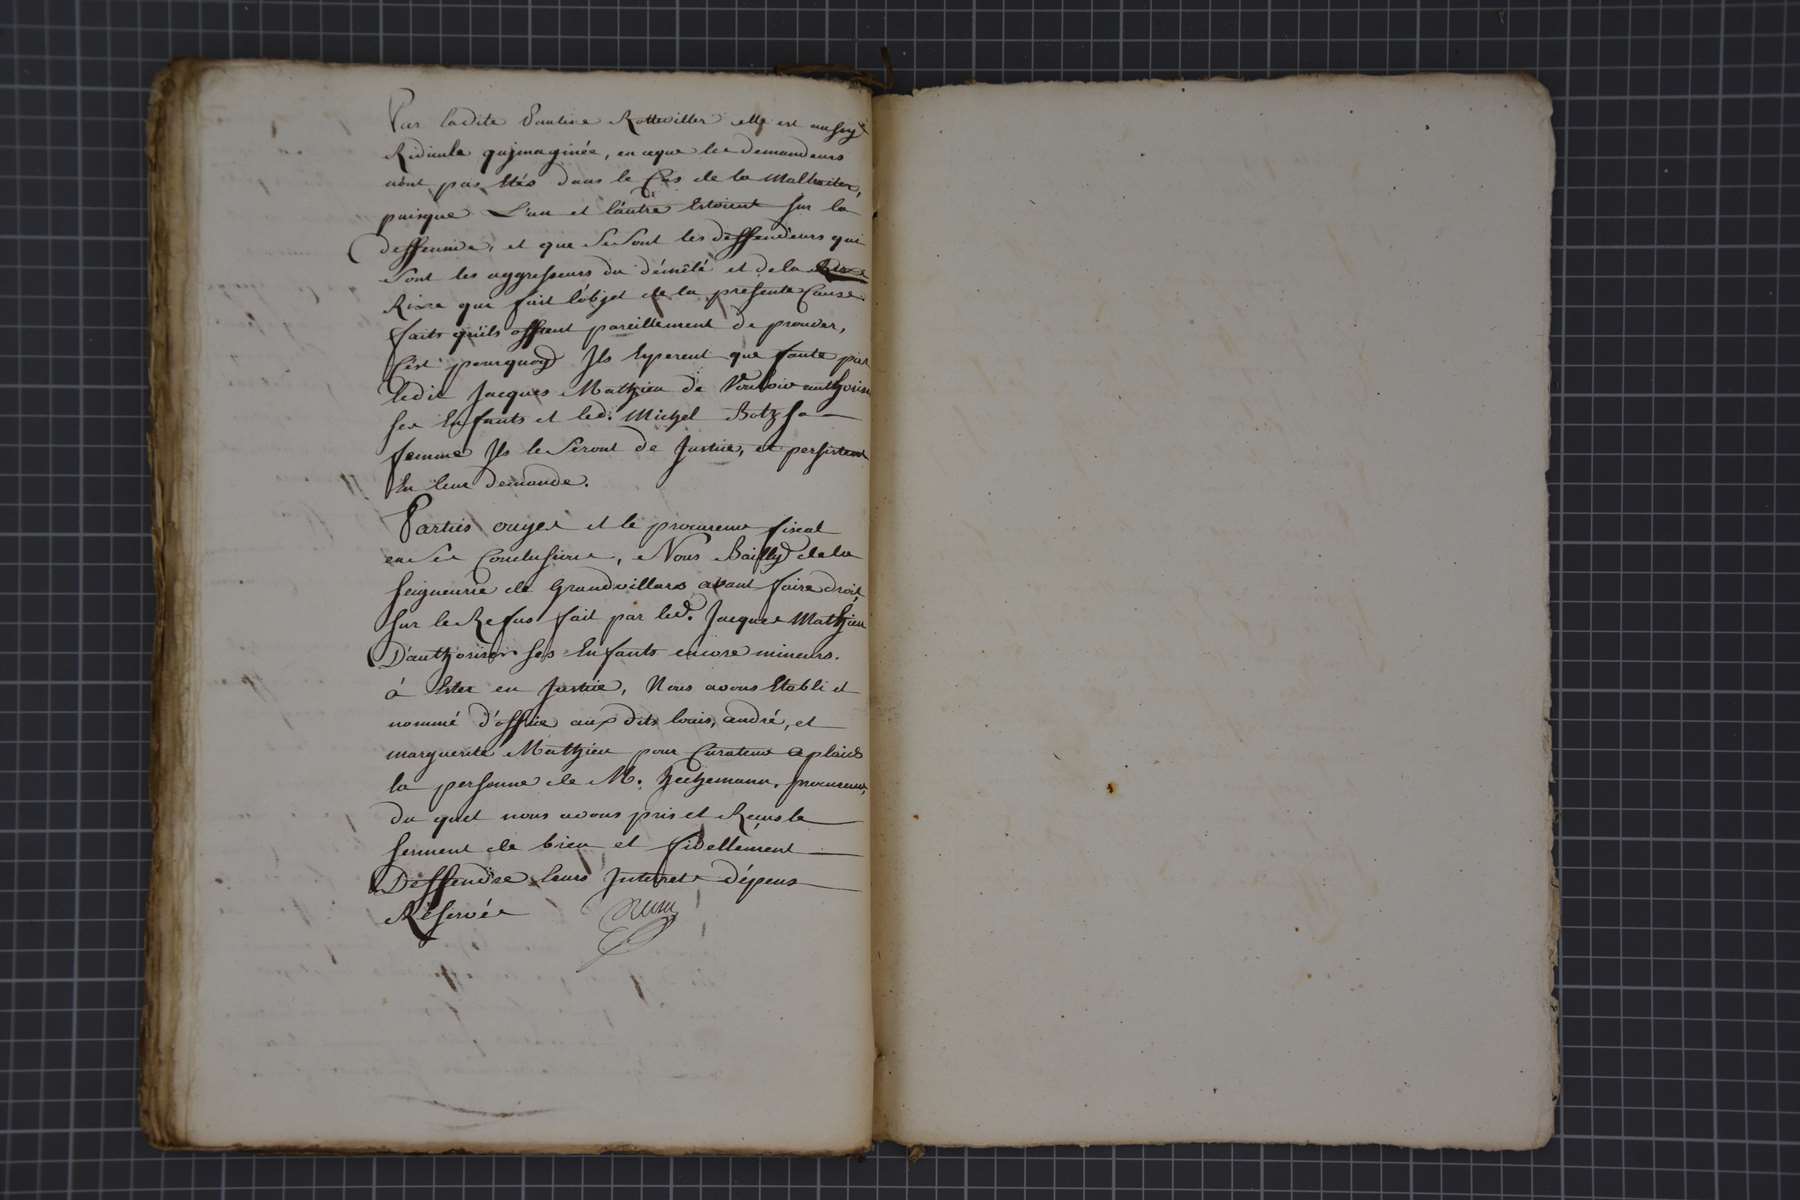 Par ladite Pantine Rottwiller elle est aussy
Ridicule qu'jmaginée, en ceque les demandeurs
nont pas Etés dans le Cas de la Maltraiter,
puisque L'un et l'autre Estoient sur la
deffensive, et que Se Sont les deffendeurs qui
Sont les aggresseurs du démêlé et de la
Rixe qui fait l'objet de la presente Cause.
faits qu'ils offrent pareillement de prouver,
C'est pourquoy Jls Esperent que faute par
ledit Jacques Mathieu de Vouloir authoriser
ses Enfants et led. Michel Botz sa
femme Jls le Seront de Justice, et persistent
En leur demande.
Parties ouyes et le procureur fiscal
en Ses Conclusions, Nous Bailly de la
Seigneurie de Grandvillars avant faire droit,
Sur le Refus fait par led. Jacques Mathieu
D'authoriser ses Enfants encore mineurs.
à Ester en Justice, Nous avons Etabli et
nommé d'office aux dits louis, andré, et
marguerite Mathieu pour Curateur a plaids
la personne de M. procureur,
du quel nous avons pris et Reçus le
serment de bien et fidellement
Deffendre leurs Jnterets dépens
Réservés